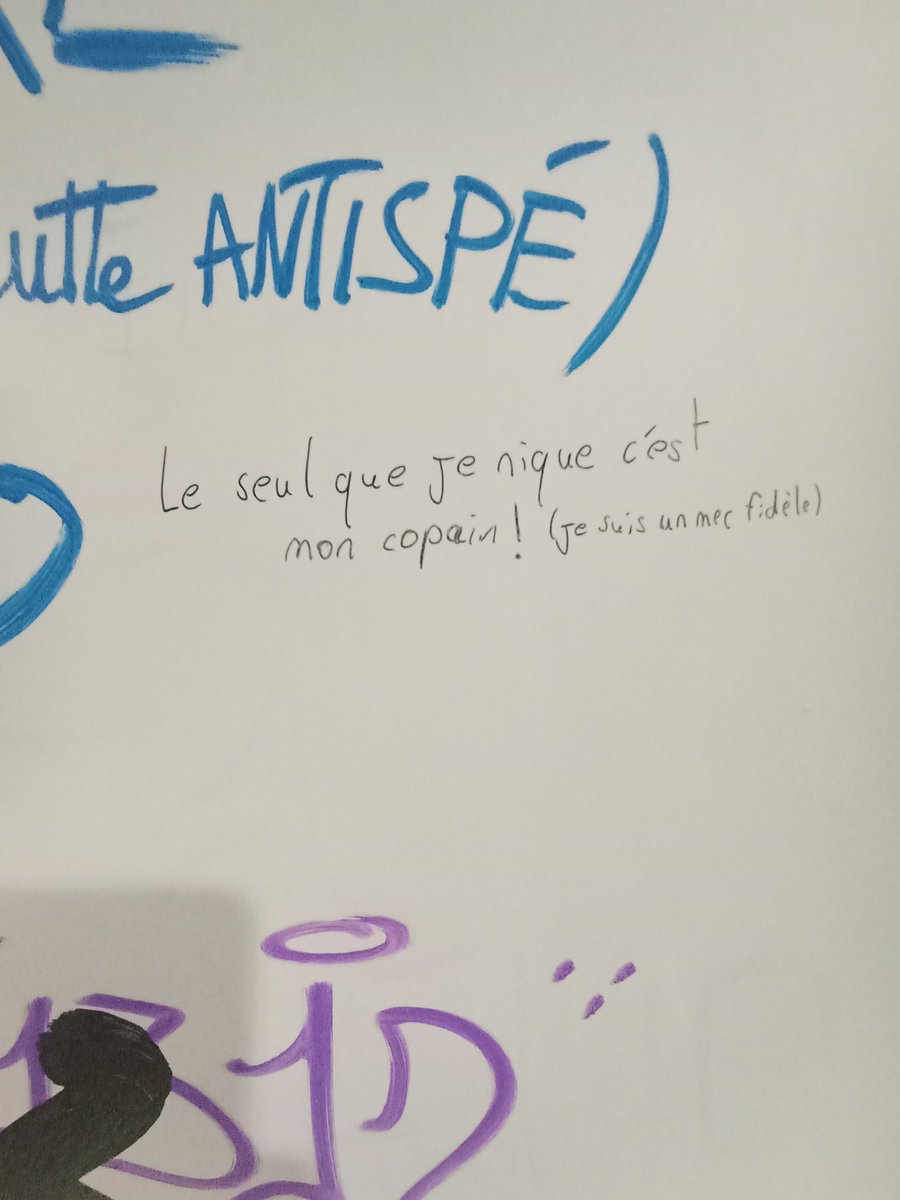 utte ANTISPÉ)
Le seul que je nique c'est
mon copain ! (je suis un mec fidèle)